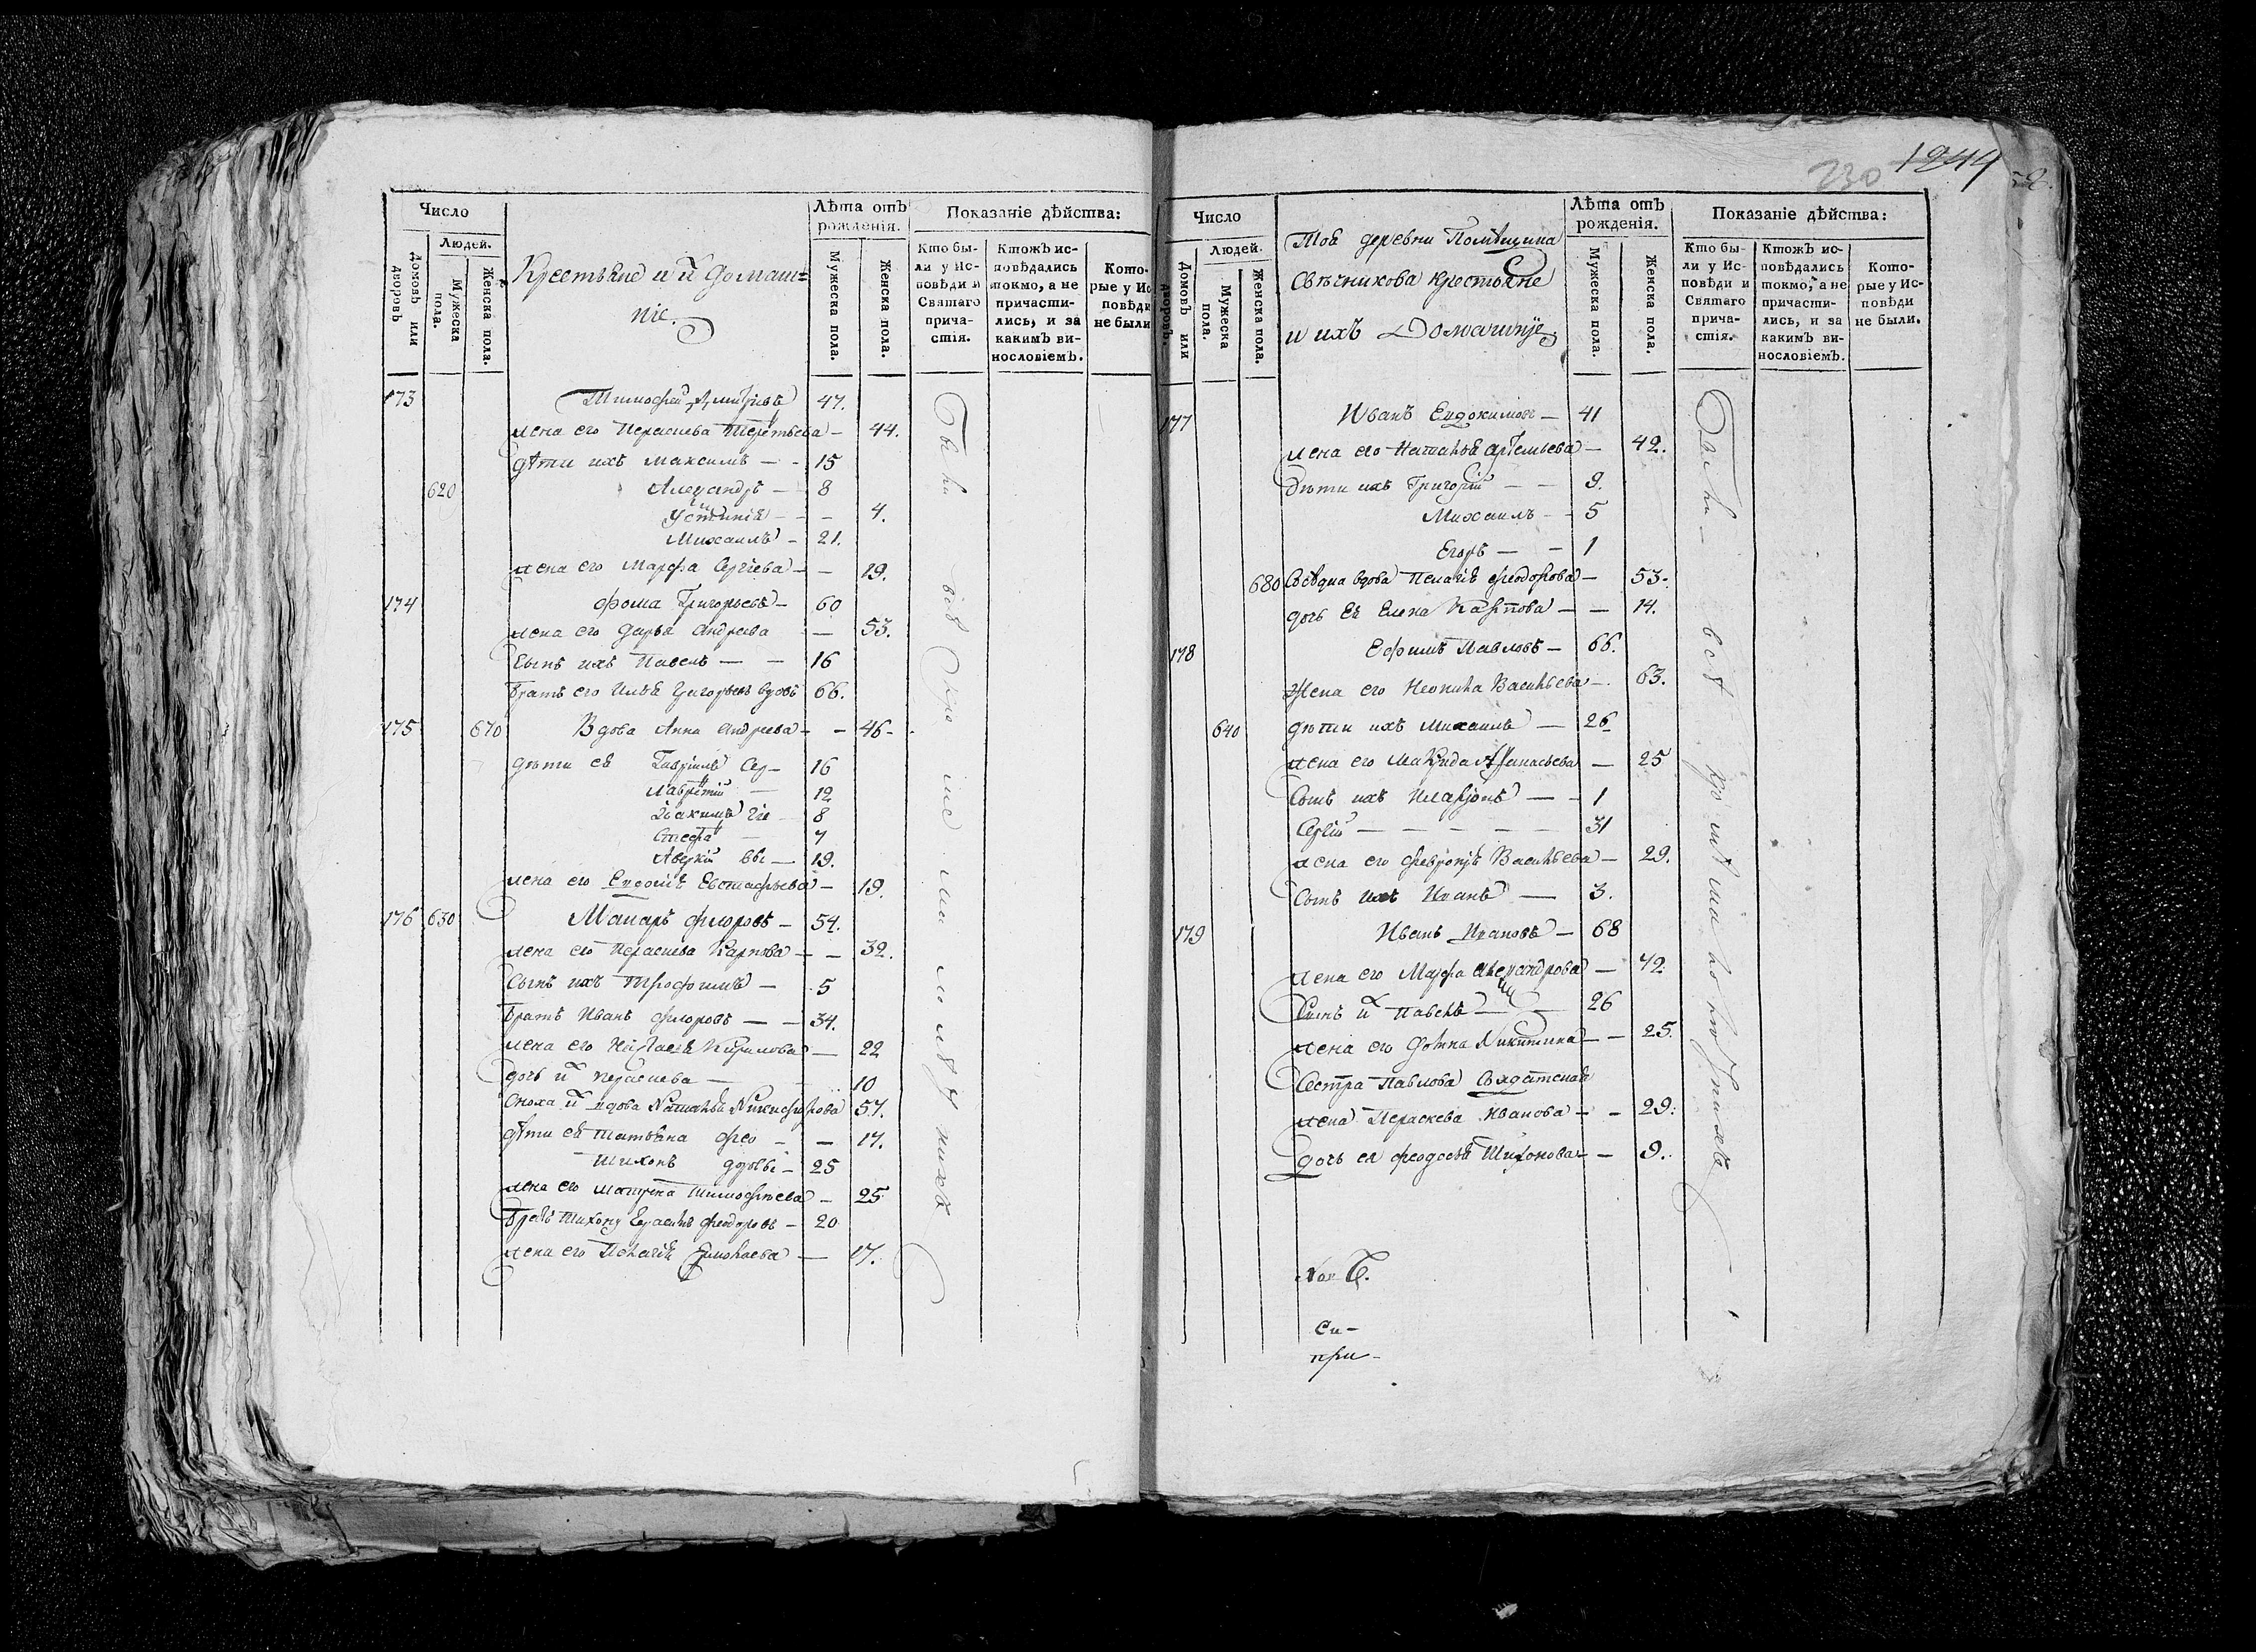 Число
Людей.
Домовъ или дворовъ
Мужеска пола.
Женска пола.
Крестьяне и их домаш=
ніе.
Лѣта отъ рожденія.
Мужеска пола.
Женска пола.
Показаніе дѣйства:
Кто бы-
ли у Ис-
повѣди и
Святаго
прича-
стія.
Ктожъ ис-
повѣдались
токмо, а не
причасти-
лись, и за
какимъ ви-
нословіемъ.
Кото-
рые у Ис
повѣди
не были
173 Тимофей Дмитріевъ 47.
жена его Параскева Терентьева — 44.
дѣти ихъ Максимъ — - 15
620 Александръ — 8
Устинія - - - 4.
Михаилъ - 21.
жена его Марфа Сергіева - - 19.
174 Фома Григорьевъ - 60
жена его Дарья Андреева — 53.
Сынъ ихъ Павелъ — — 16
братъ его Илья Григорьевъ вдовъ 66.
175 670 Вдова Анна Андреева - - 46-
дѣти ея Гавріилъ 16
Лаврентій — 12
Іоакимъ 8
Стефа — 7
Аверкій — 19.
жена его Евдокія Евстафьева - 19.
176 630 Макаръ Флоровъ - 54.
жена его Параскева Карпова - - 32.
Сынъ ихъ Трофимъ - 5
братъ Иванъ Флоровъ — - 34.
жена его Наталья Кирилова — 22
дочь их Параскева — 10
Сноха их вдова Наталья Никифорова 57.
дѣти ея Татьяна - - 17.
Тихонъ - 25
жена его Матрена Тимофѣева - 25
братъ Тихону Герасимъ Феодоровъ - 20
жена его Пелагія Ермолаева — 17.
230 1244
Число
Людей.
Домовъ или дворовъ.
Мужеска пола.
Женска пола.
Той деревни Помѣщика
Свѣчникова крестьяне
и ихъ Домашніе
Лѣта отъ рожденія.
Мужеска пола.
Женска пола.
Показаніе дѣйства:
Кто бы-
ли у Ис-
повѣди и
Святаго
прича-
стія.
Ктожъ ис-
повѣдались
токмо, а не
причасти-
лись, и за
какимъ ви-
нословіемъ.
Кото-
рые у Ис-
повѣди
не были.
177 Иванъ Евдокимовъ — 41
жена его Наталья Артемьева — 42.
дѣти ихъ Григорій — — 9.
Михаилъ - - 5
Егоръ — — 1
680 вдова Пелагія Феодорова — 53-
дочь Ея Елена Карпова — — 14.
178 Ефимъ Павловъ — 66.
Жена его Неонила Васильева — 63.
640 дѣти ихъ Михаилъ — 26
жена его Макрида Афанасьева — 25
Сынъ ихъ Иларіонъ — - 1
Сергій — — — — — 31
жена его Февронія Васильева — 29.
Сынъ ихъ Иванъ — 3.
179 Иванъ Ивановъ — 68
жена его Марфа Александрова — 42
Сынъ их Павелъ — — 26
жена его Фотина Никитина — — 25.
Сестра Павлова Солдатская
жена Параскева Иванова - - 29.
дочь ея Феодосья Тихонова - - 9.
Си-
при-